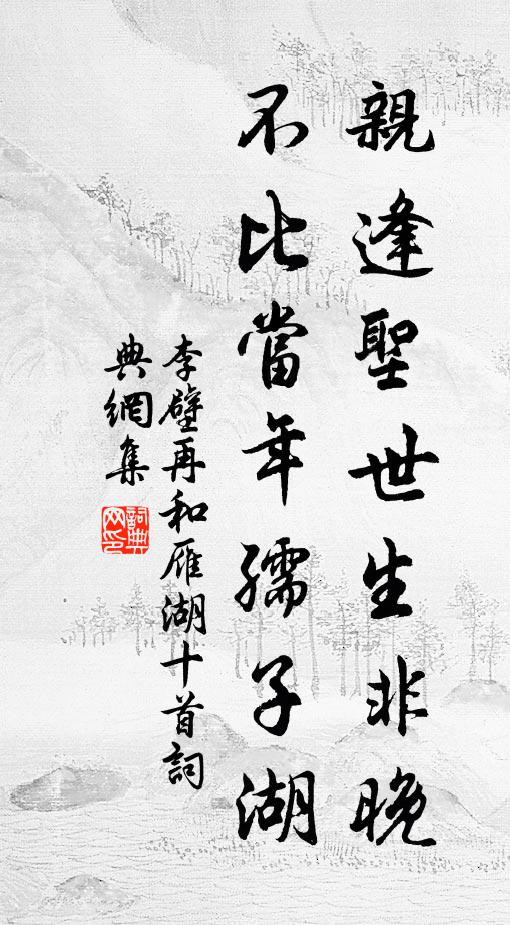 親逢聖世生非晚
不比當年孺子湖
李壁再和雁湖十首詞
典網集
詞典
网印